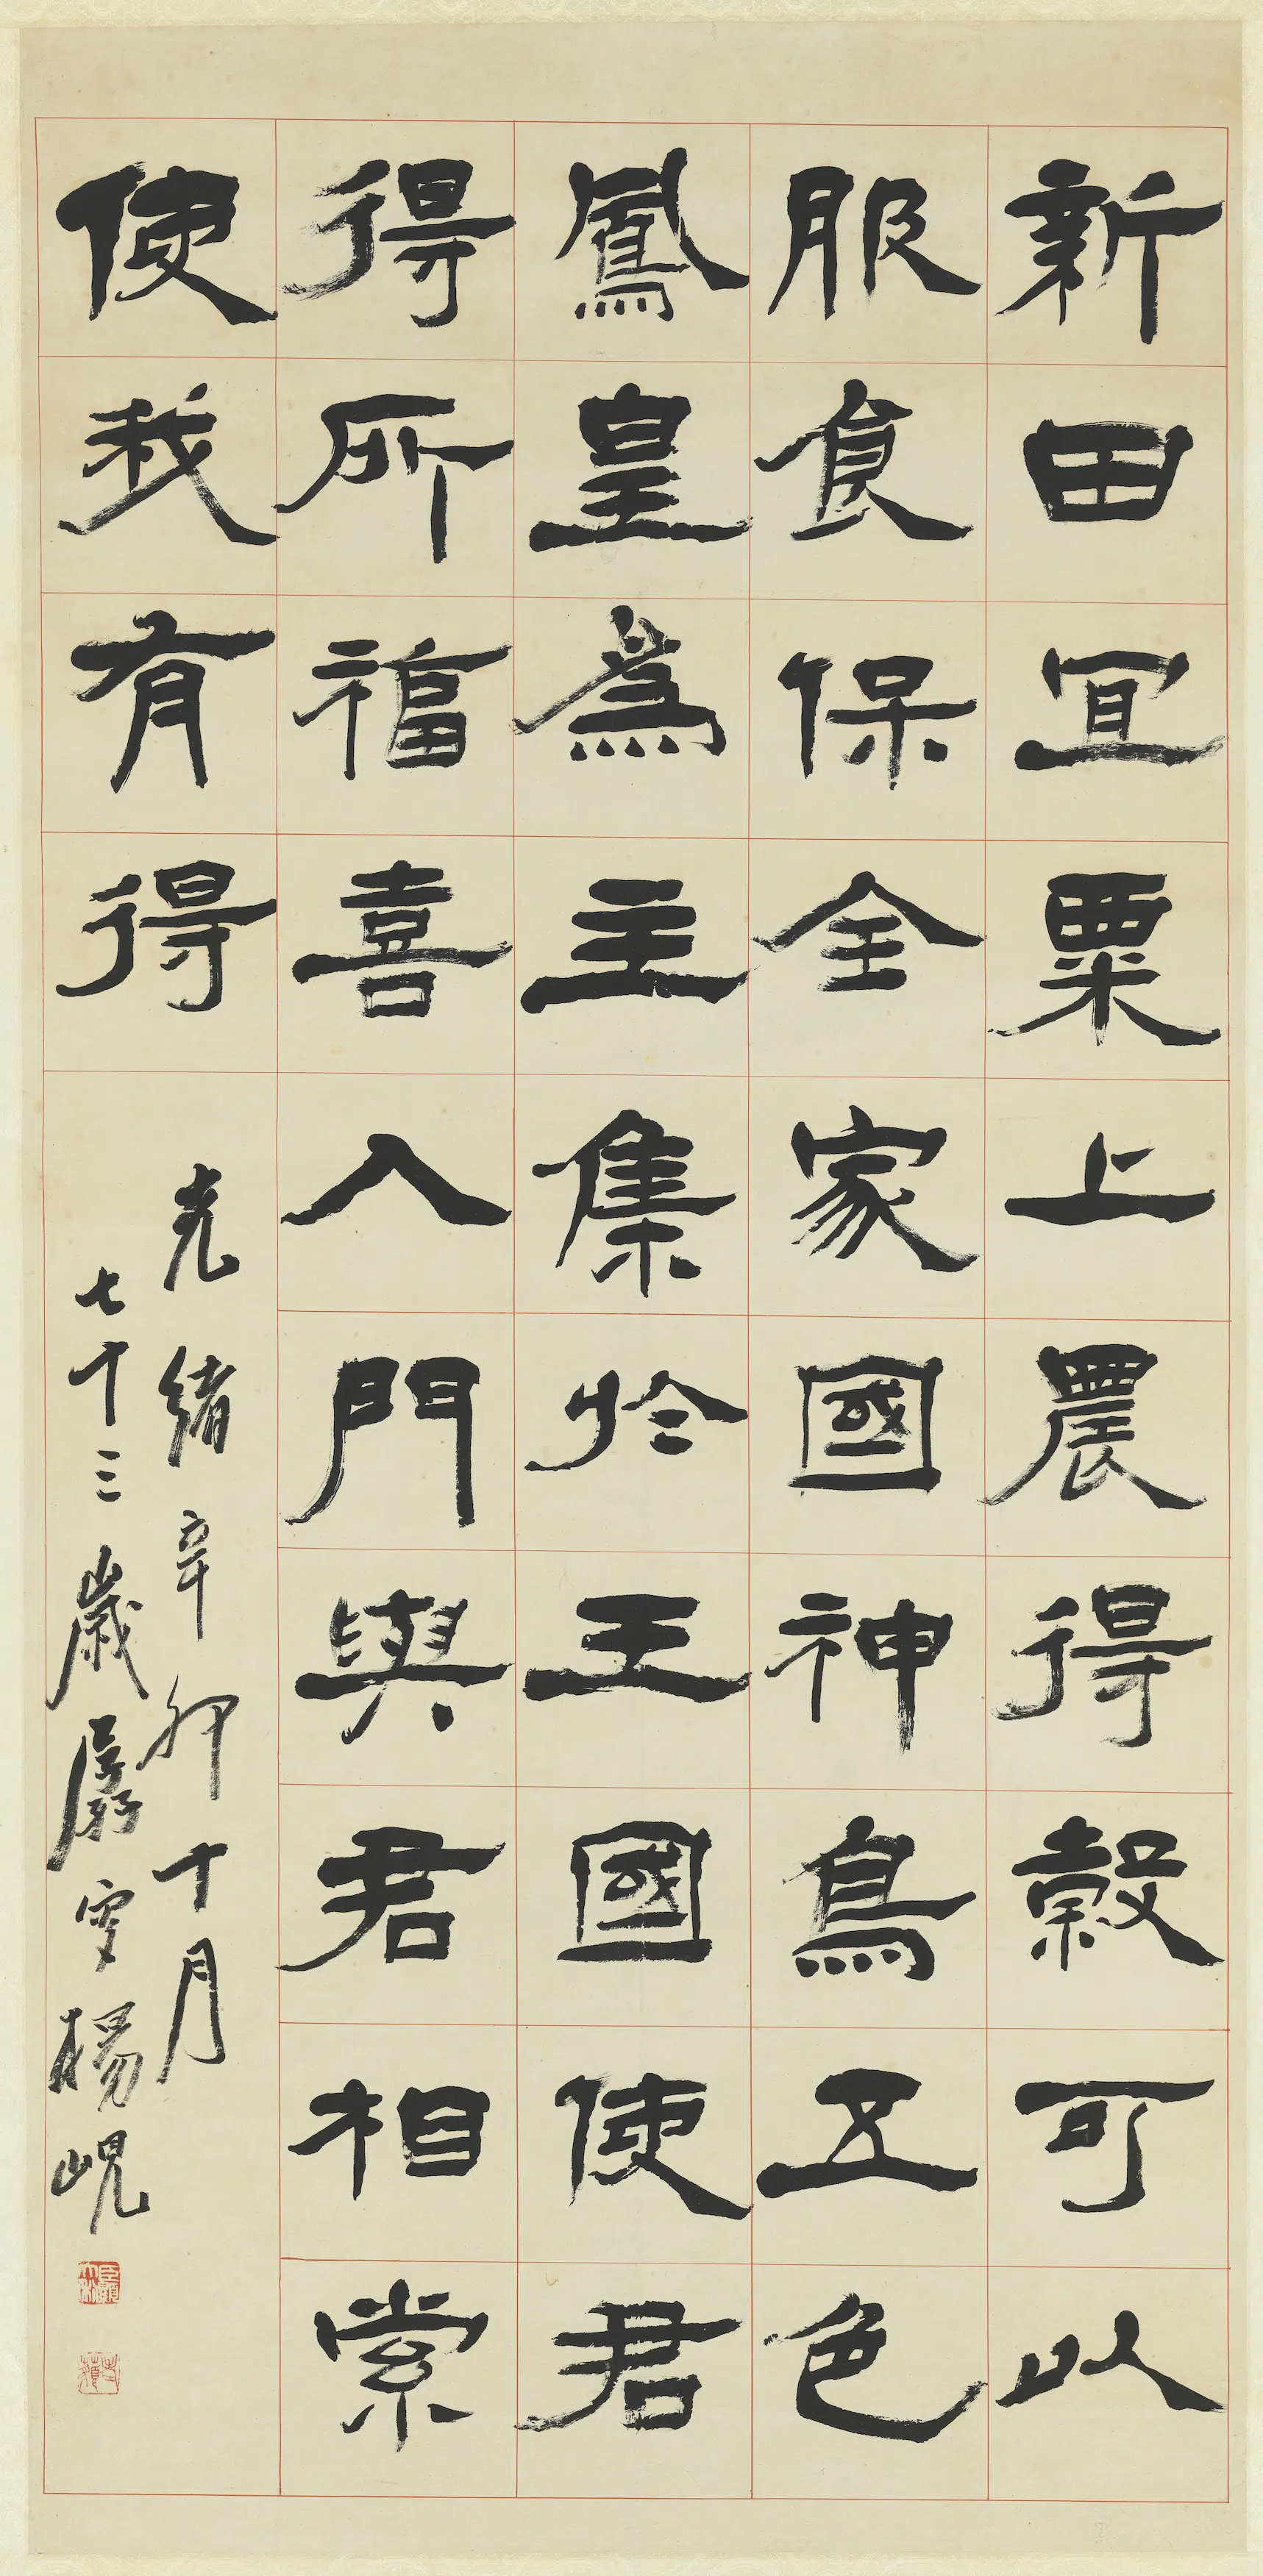 新田宜粟上農得穀可以
服食保全家國神鳥五色
鳳皇爲主集於王國使君
得所福喜入門與君相索
使我有得
光緒辛卯十月
七十三歲孱叟楊峴